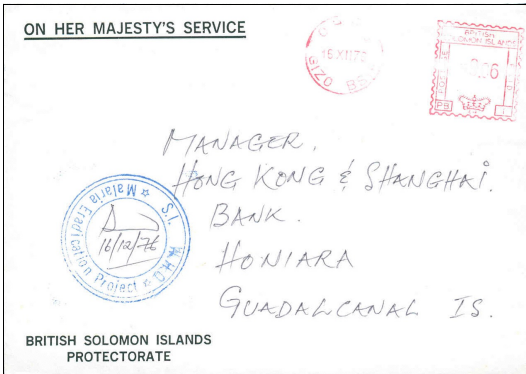 ON HER MAJESTY'S SERVICE
G.P.O.
16 XII 76
GIZO B.S.
BRITISH
SOLOMON ISLANDS
PB 1
MANAGER,
HONG KONG & SHANGHAI.
BANK.
HONIARA
GUADALCANAL IS.
S.I. W.H.O. Malaria Eradication Project
16/12/76
BRITISH SOLOMON ISLANDS
PROTECTORATE